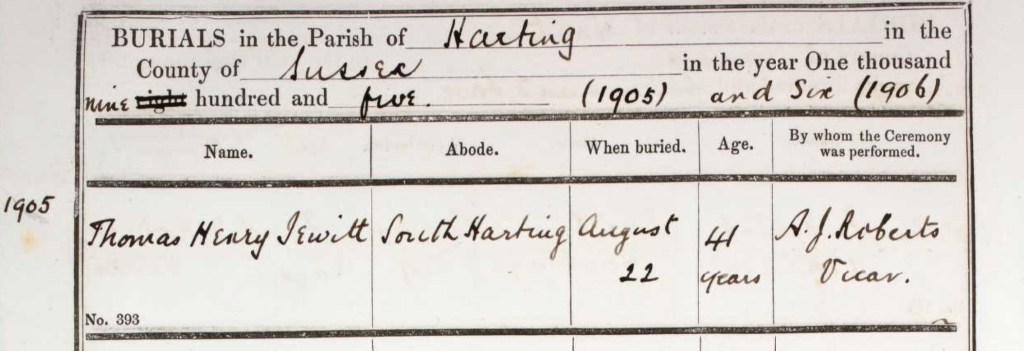 BURIALS in the Parish of Harting in the
County of Sussex in the year One thousand
nine eight hundred and five. (1905) and Six (1906)
Name. Abode. When buried. Age. By whom the Ceremony
was performed.
1905
Thomas Henry Jewitt South Harting August 41 A. J. Roberts
22 years Vicar.
No. 393